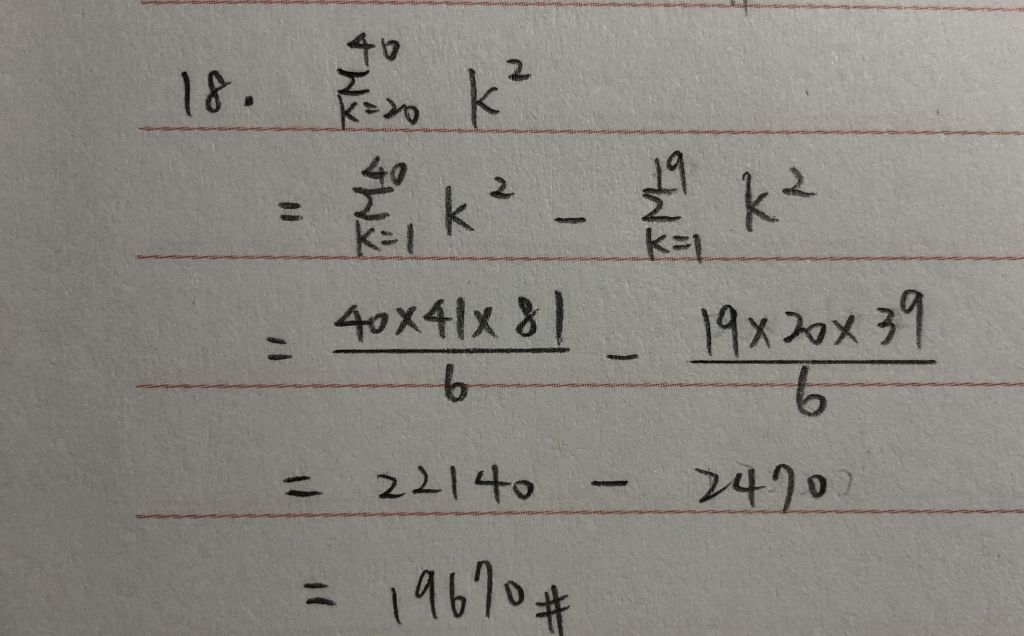 18. \sum_{k=20}^{40} k^2
= \sum_{k=1}^{40} k^2 - \sum_{k=1}^{19} k^2
= \frac{40×41×81}{6} - \frac{19×20×39}{6}
= 22140 - 2470
= 19670 #